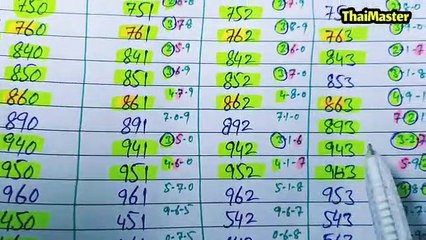 ThaiMaster
750 751 ③6-8 752 ③7-8 753 8-0
760 761 ③7-8 762 ③8-9 763
840 841 ③5-9 842 ③6-0 843 ②1-7
850 851 ③6-9 852 ③7-0 853 ③1-8
860 861 4-7-9 862 4-8-0 863 ④9-1
890 891 7-0-9 892 7-1-0 893 7②1
940 941 ③5-0 942 ③1-6 943 ③-2-7
950 951 4-6-0 952 4-1-7 953 5-9
960 961 5-7-0 962 5-1-8 953
450 451 9-6-5 542 9-6-7 543
0-7-5 0-7-6